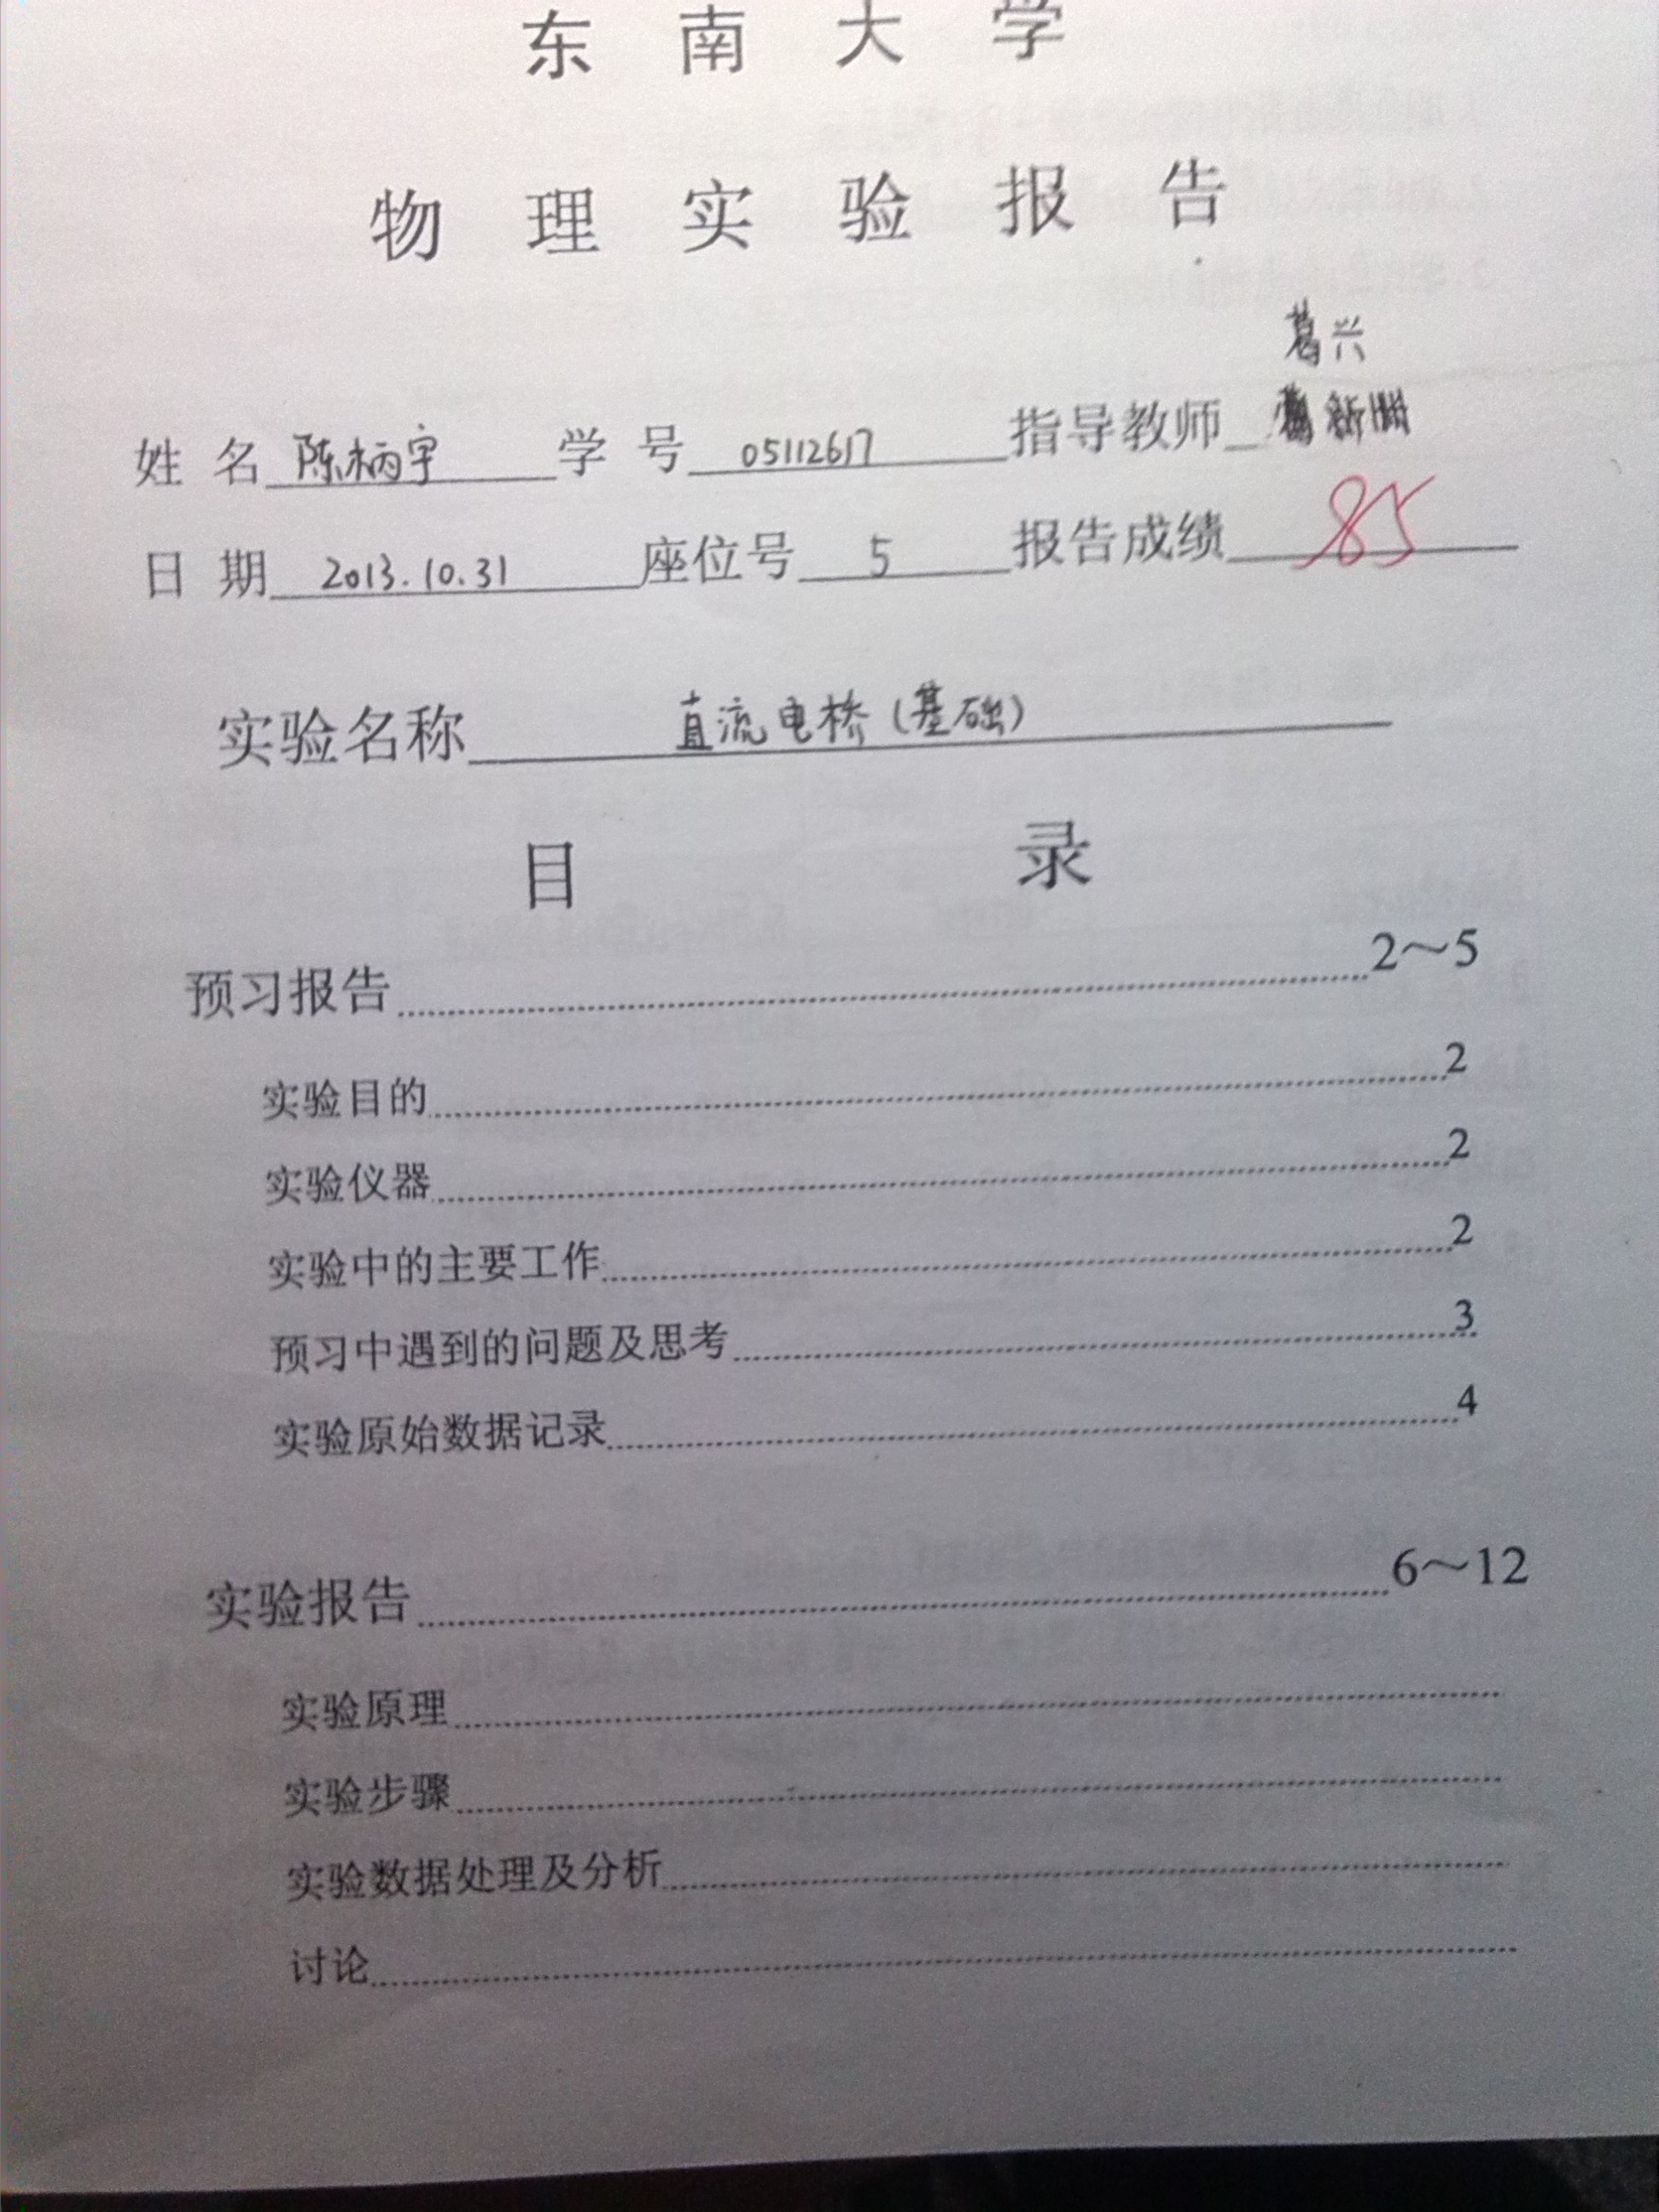 东南大学
物理实验报告
葛兴
姓名 陈柄宇 学号 05112617 指导教师
日期 2013.10.31 座位号 5 报告成绩 85
实验名称 直流电桥(基础)
目录
预习报告 2～5
实验目的 2
实验仪器 2
实验中的主要工作 2
预习中遇到的问题及思考 3
实验原始数据记录 4
实验报告 6～12
实验原理
实验步骤
实验数据处理及分析
讨论